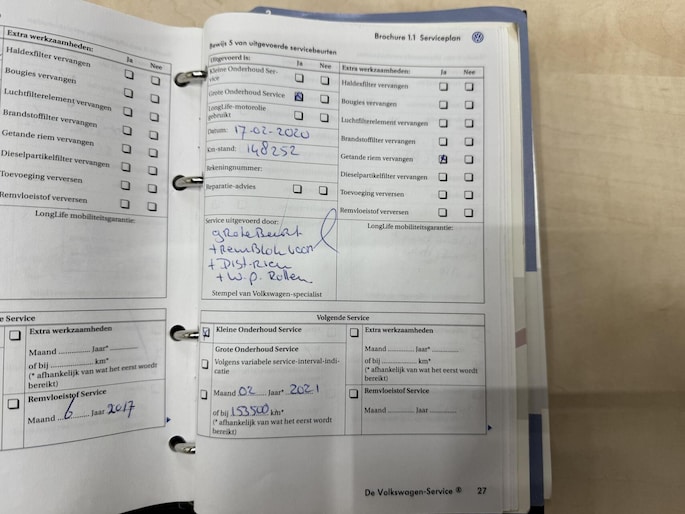 Extra werkzaamheden:
Ja
Nee
Haldexfilter vervangen
Bougies vervangen
Luchtfilterelement vervangen
Brandstoffilter vervangen
Getande riem vervangen
Dieselpartikelfilter vervangen
Toevoeging verversen
Remvloeistof verversen
LongLife mobiliteitsgarantie:
e Service
Extra werkzaamheden
Maand .............. Jaar*
of bij .................. km*
(* afhankelijk van wat het eerst wordt
bereikt)
Remvloeistof Service
Maand 6 Jaar 2017
Brochure 1.1 Serviceplan
Bewijs 5 van uitgevoerde servicebeurten
Uitgevoerd is:
Ja
Nee
Kleine Onderhoud Ser-
vice
Grote Onderhoud Service
LongLife-motorolie
gebruikt
Datum: 17-02-2020
Km-stand: 148252
Rekeningnummer:
Reparatie-advies
Service uitgevoerd door:
grote Beurt
+ RemBlok voor
+ Dist. Riem
+ W.p. Rollen
Stempel van Volkswagen-specialist
Extra werkzaamheden:
Ja
Nee
Haldexfilter vervangen
Bougies vervangen
Luchtfilterelement vervangen
Brandstoffilter vervangen
Getande riem vervangen
Dieselpartikelfilter vervangen
Toevoeging verversen
Remvloeistof verversen
LongLife mobiliteitsgarantie:
Volgende Service
Kleine Onderhoud Service
Grote Onderhoud Service
Volgens variabele service-interval-indi-
catie
Maand 02 Jaar* 2021
of bij 153500 km*
(* afhankelijk van wat het eerst wordt
bereikt)
Extra werkzaamheden
Maand .............. Jaar*
of bij .................. km*
(* afhankelijk van wat het eerst wordt
bereikt)
Remvloeistof Service
Maand ............ Jaar
De Volkswagen-Service
27